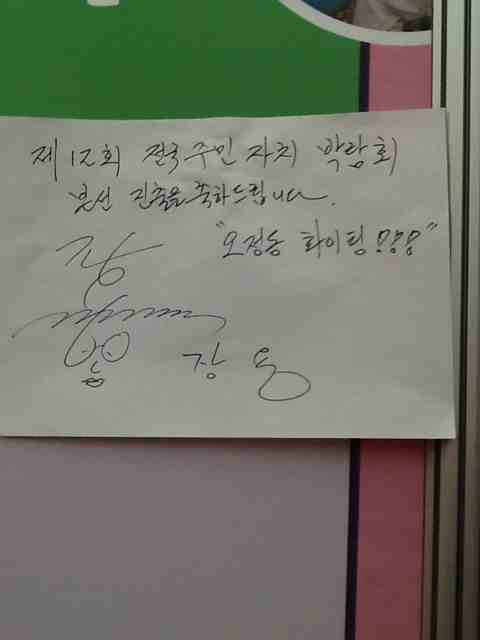 제12회 전국 주민 자치 박람회
본선 진출을 축하드립니다.
"오정동 화이팅!!!"
장용